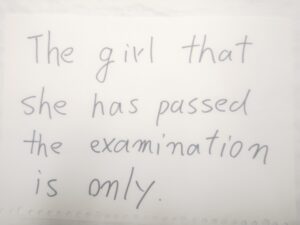 The girl that
she has passed
the examination
is only.